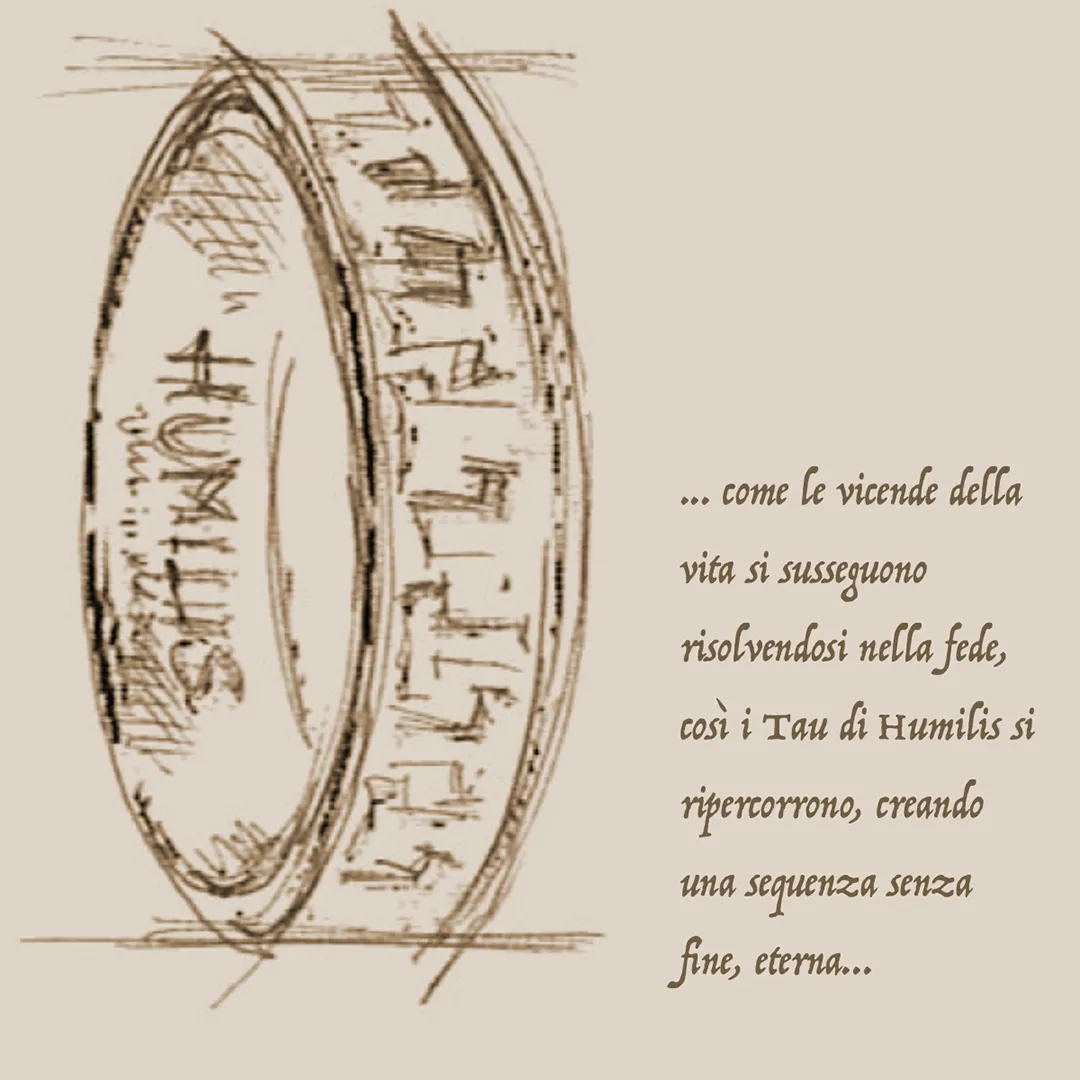 HUMILIS
... come le vicende della
vita si susseguono
risolvendosi nella fede,
così i Tau di Humilis si
ripercorrono, creando
una sequenza senza
fine, eterna...